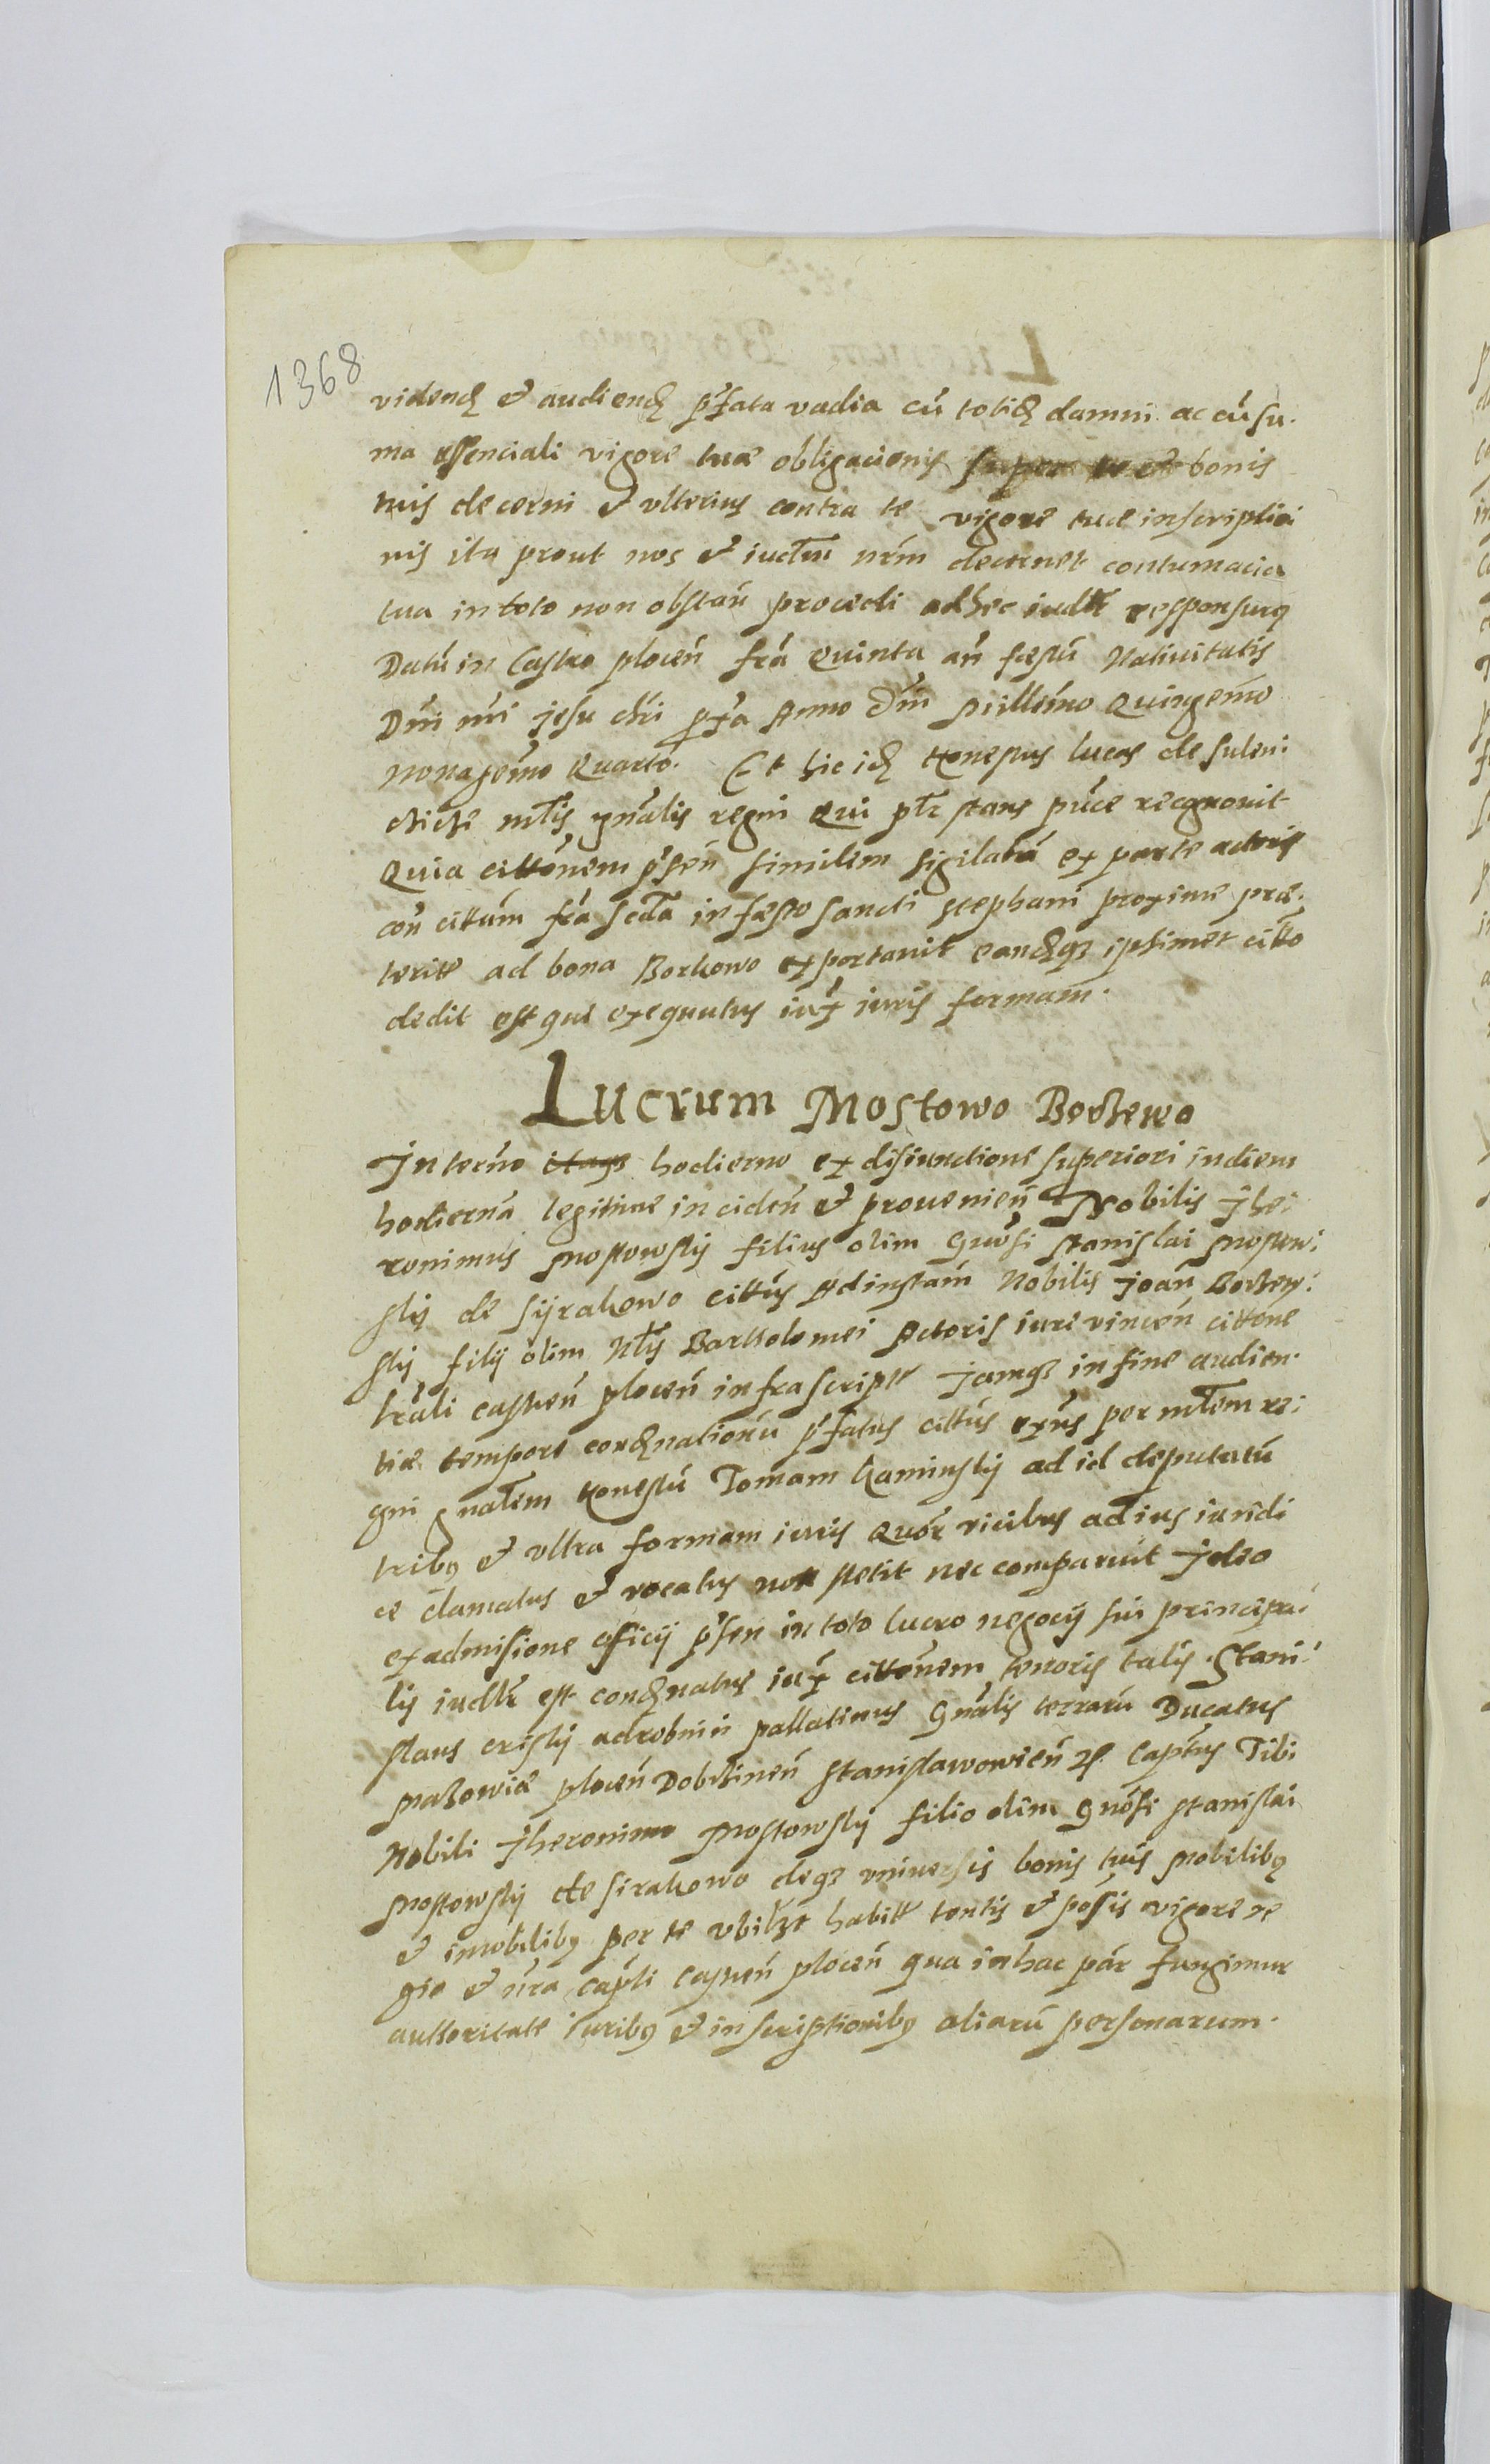 1368
vidend et audiend p̃fata vadia cũ totid damni ac cũ su-
ma essenciali vigore tuæ obligacionis super te et bonis
tuis decerni et vlterius contra te vigore tuæ inscriptio:
nis ita prout nos et iudm nrm decernet contumacia
tua in toto non obstan procedi ad hec iudlr responsurus
Datũ in Castro plocen fra Quinta an festũ Natiuitatis
Dni nri Jesu chri pxa Anno Dni Millemo Quingemo
Nonagemo Quarto. Et hic id Honestus lucas de suleni
chicze mlis gnalis regni Qui plr stans puce recognouit
Quia cittonem psen similem sigilatã ex parte actoris
con cittum fra scda in festo sancti Stephani proxime præ-
terite ad bona Borkowo exportauit eandqз ipsimet citto
dedit est que exequutus iux iuris formam.
Lucrum Mostowo Borzewo
In terno itaqз hodierno ex disiunctione superiori in diem
hodiernã legitime inciden et prouenien Nobilis Jhe:
ronimus Mostowsky filius olim Gnosi Stanislai Mostow:
sky de Syrakowo cittus Ad instam Nobilis Joan Borzew:
sky filij olim Nlis Bartholomei Actoris iure vincen cittone
trali castren plocen infrascripte Jamqз in fine audien-
tiæ tempore condnationũ p̃fatus cittus exus per mlem re:
gni gnalem Honestũ Tomam Kaminsky ad id deputatũ
tribus et vltra formam iuris Quor vicibus ad ius iuridi
ce clamatus et vocatus non stetit nec comparuit Ideo
ex admisione officij psen in toto lucro negocij sui principa:
lis iudlr est condnatus iux cittonem tenoris talis. Stani:
slaus crisky a drobnin pallatinus Gnalis terrarũ Ducatus
Mazowiæ plocen Dobrzinen Stanislawowien Captus Tibi
Nobili Jheronimo Mostowsky filio olim Gnosi Stanislai
Mostowsky de sirakowo deqз vniuersis bonis tuis mobilibus
et imobilibus per te vbilizt habitt tentis et possis vigore re
gia et nra capli castren plocen qua in hac par fungimur
auttoritate iuribus et inscriptionibus aliarũ personarum.